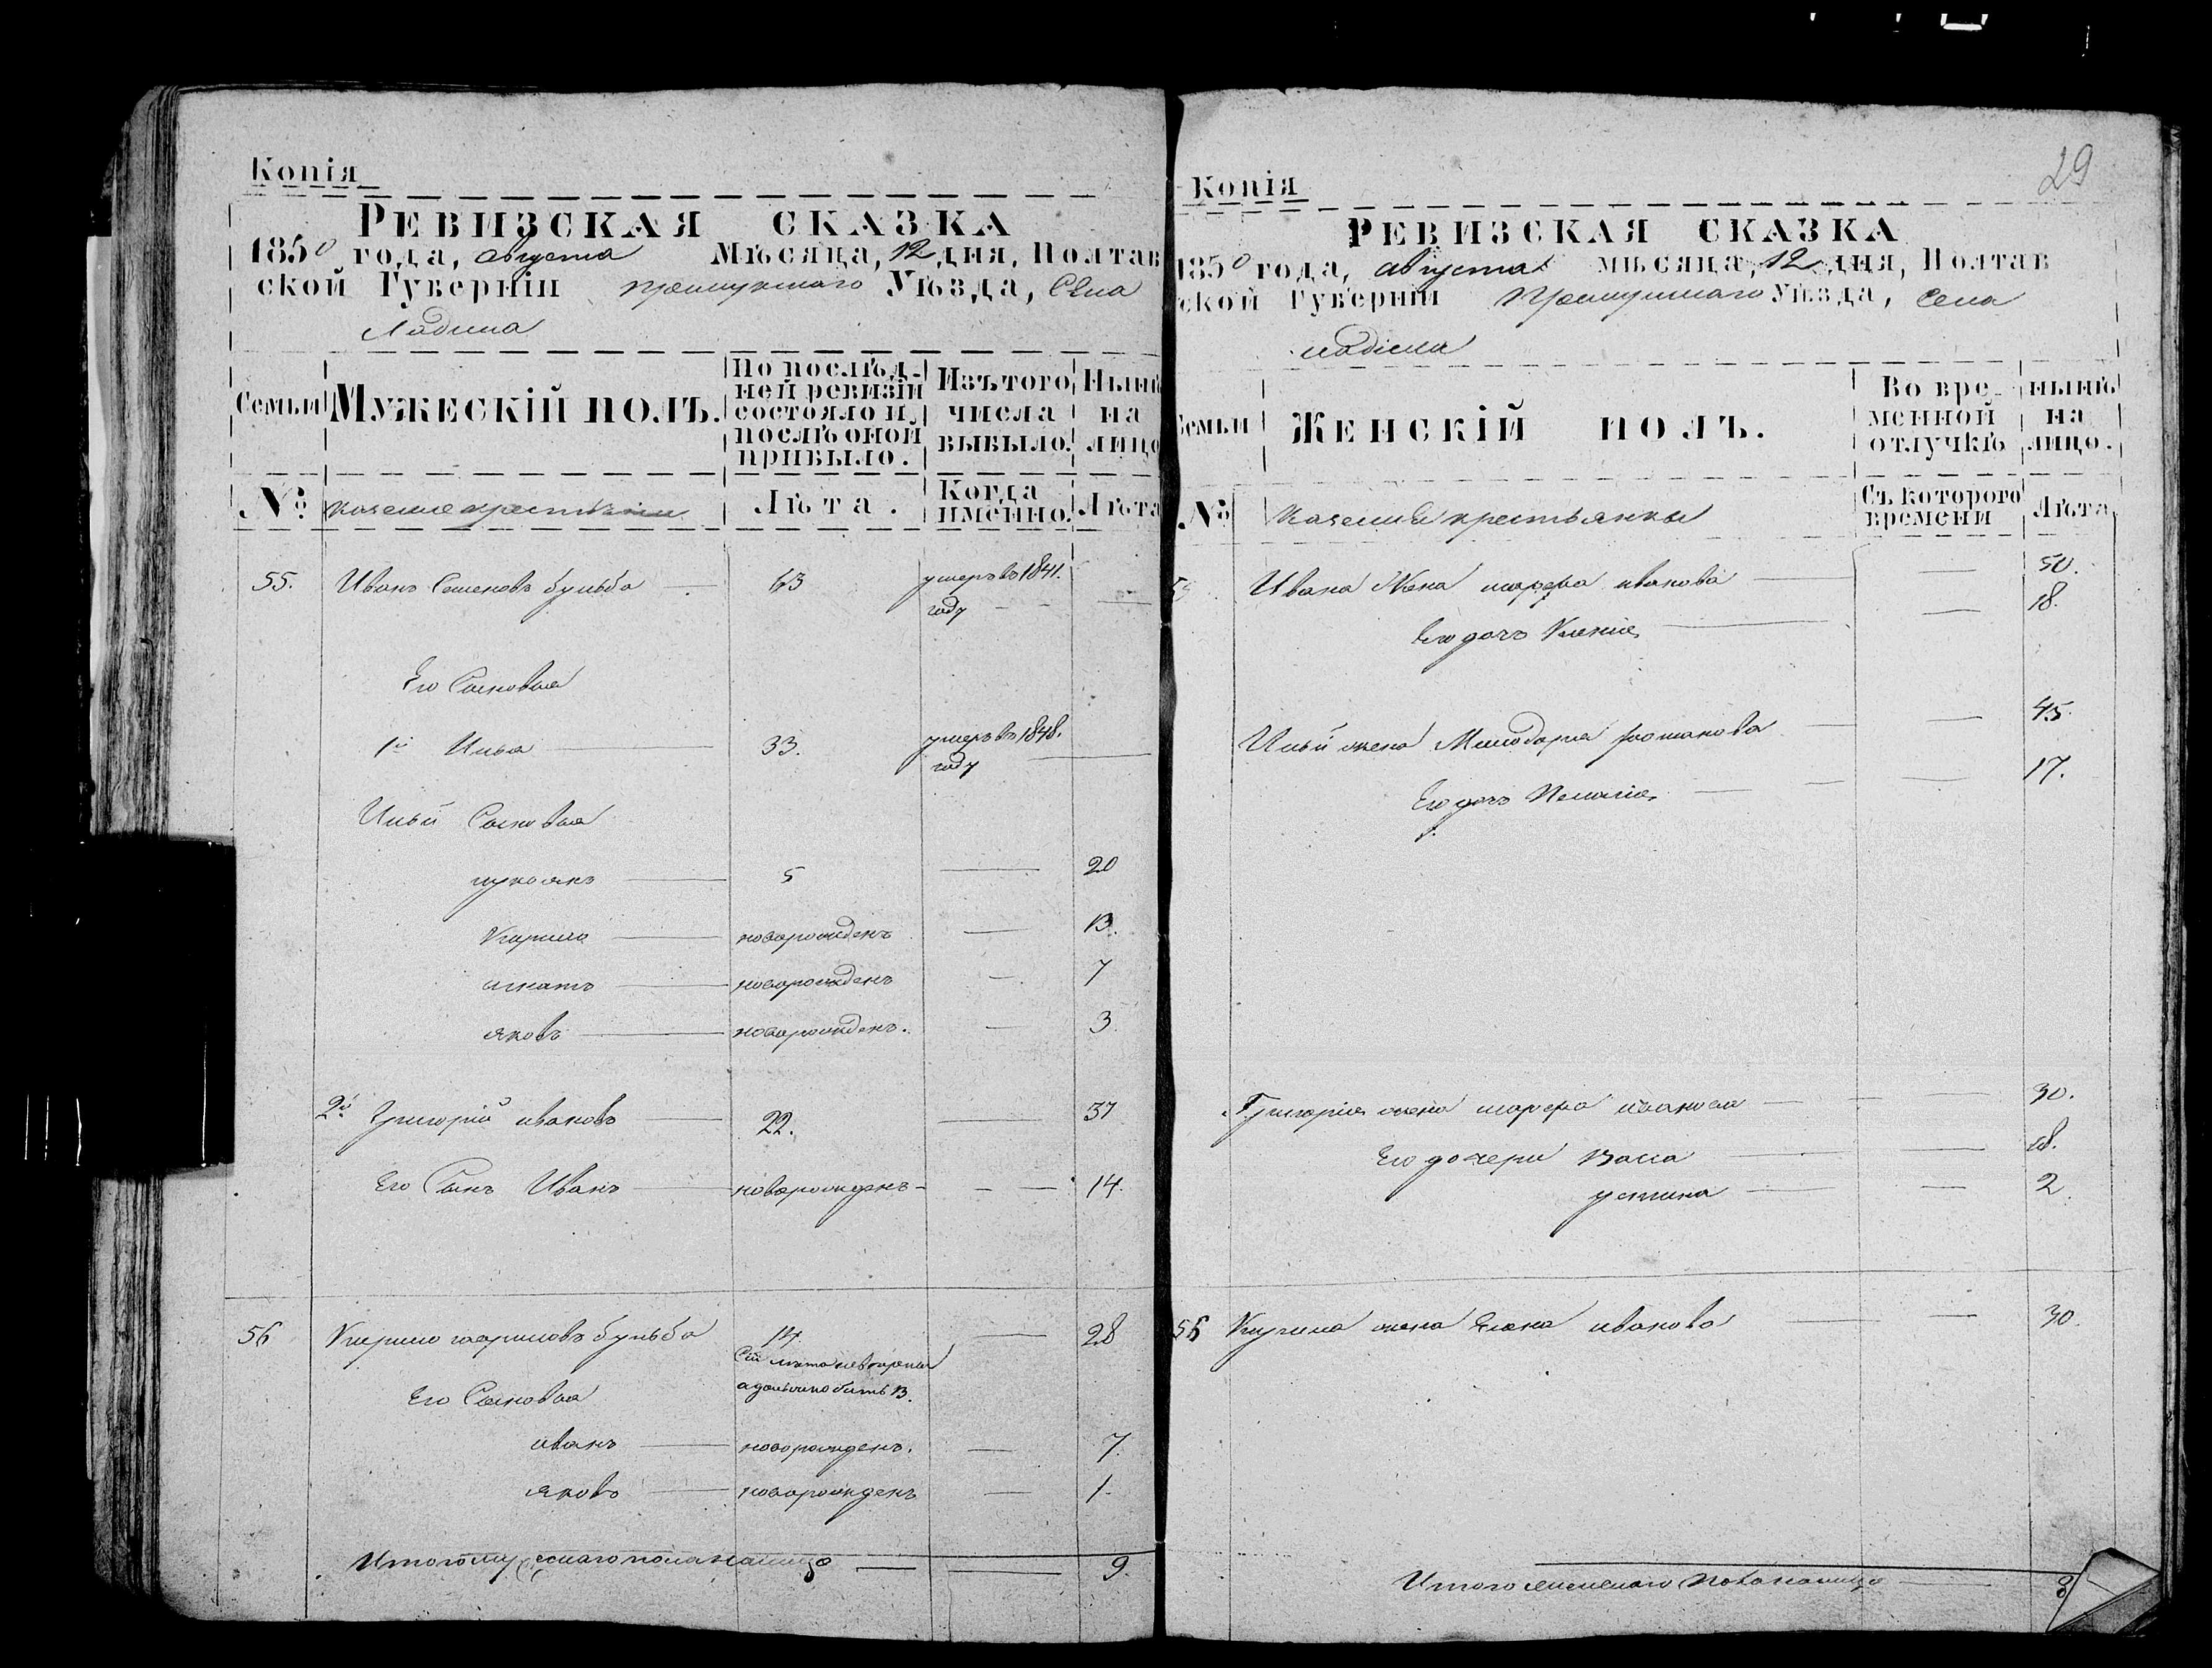 Копія
РЕВИЗСКАЯ СКАЗКА
1850 года, августа Мѣсяца, 12 дня, Полтав
ской Губерніи Прилуцкаго Уѣзда, Села
Ладина
Семьи
МУЖЕСКІЙ ПОЛЪ.
По послѣд-
ней ревизіи
состояло и
послѣ оной
прибыло.
Изъ того
числа
выбыло.
Нынѣ
на
лицо
№
казенные крестьяне
Лѣта.
Когда
именно.
Лѣта
55. Иванъ Семеновъ бульба 63 умеръ въ 1841.
году
Его Сыновья
1й Илья 33. умеръ въ 1848.
году
Ильи Сыновья
лукьянъ 5 20
Кирило новорожденъ 13.
игнатъ новорожденъ 7
яковъ новорожденъ. 3.
2й Григорій ивановъ 22. 37
Его Сынъ Иванъ новорожденъ 14.
56 Кирило гавриловъ бульба 14 28
а должно быть 13.
Его Сыновья
иванъ новорожденъ. 7.
яковъ новорожденъ 1.
Итого мужескаго пола налицо 9.
29
Копія
РЕВИЗСКАЯ СКАЗКА
1850 года, августа мѣсяца, 12 дня, Полтав
ской Губерніи Прилуцкаго Уѣзда, Села
ладина
Семьи
ЖЕНСКІЙ ПОЛЪ.
Во вре-
менной
отлучкѣ
нынѣ
на
лицо.
№
казенные крестьянки
Съ котораго
времени
Лѣта
55 Ивана Жена марфа иванова 50.
Его дочь Ксенія 18.
Ильи жена Минодора романова 45.
Его дочь Пелагія 17.
Григорія жена марфа иванова 30.
Его дочери Васса 18.
устина 2.
56 Кирила жена Елена иванова 30.
Итого женскаго пола налицо 8